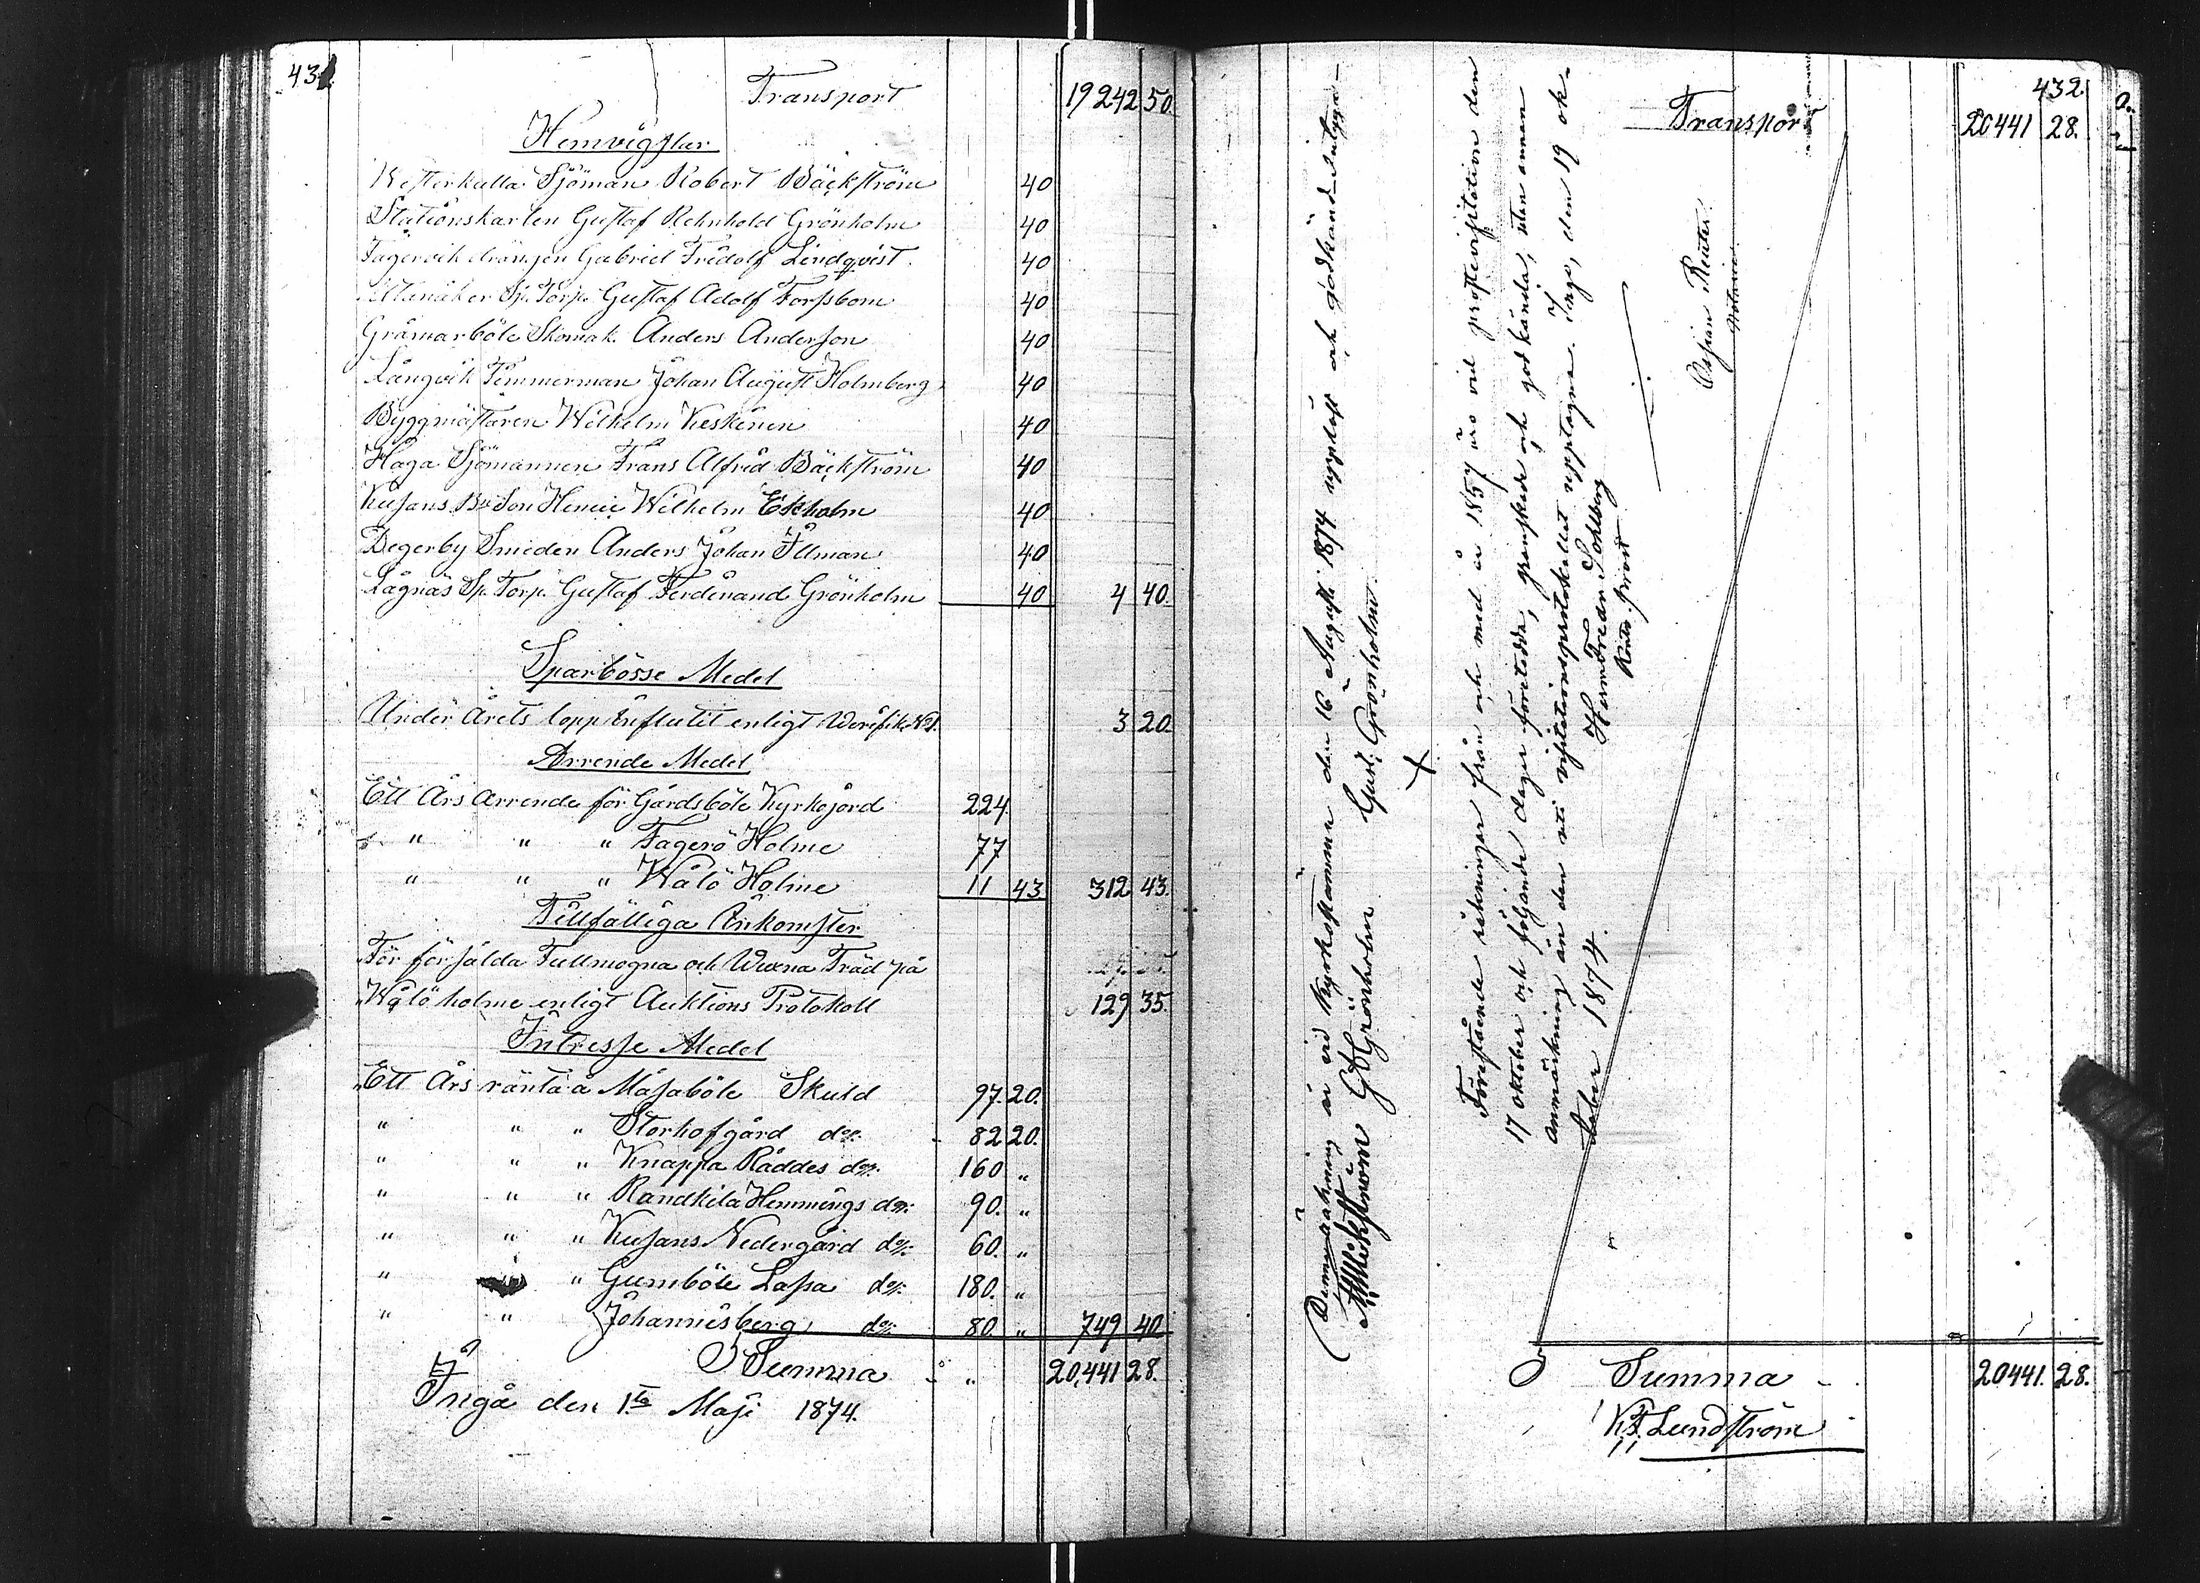 431.
Transport 19242 50.
Hemvigslar
Westerkulla Sjöman Robert Bäckström 40
Stationskarlen Gustaf Rehnhold Grönholm 40
Fagervik drängen Gabriel Fridolf Lindqvist. 40
Sp. Torp. Gustaf Adolf Forssbom 40
Gråmarböle Skomak. Anders Anderson 40
Långvik Timmerman Johan August Holmberg 40
Byggmästaren Wilhelm Keskinen 40
Haga Sjömannen Frans Alfrid Bäckström 40
Kusans Bd Son Henric Wilhelm Ekholm 40
Degerby Smeden Anders Johan Illman 40
Lågnäs Sp. Torp. Gustaf Ferdinand Grönholm 40 4 40.
Sparbösse Medel
Under Årets lopp influtit enligt Verifik. No 1. 3 20.
Arrende Medel
Ett Års Arrende för Gårdsböle Kyrkojord 224.
" " " Fagerö Holme 77
" " " Wålö Holme 11 43 312 43.
Tillfälliga Inkomster
För försålda Fullmogna och Wuxna Träd på
Wålö holme enligt Auktions Protokoll 129 35.
Intresse Medel
Ett Års ränta å Måsaböle Skuld 97. 20.
" " " Storhofgård do/. 82 20.
" " " Knappa Räddes do/. 160 "
" " " Randkila Hemmings do/. 90. "
" " " Kusans Nedergård do/. 60. "
" " Gumböle Lassa do/. 180. "
" " Johannesberg do/. 80 " 749 40
Summa " 20,441 28.
Ingå den 1ta Maji 1874.
432.
Transport 20441 28.
Denna räkning är vid kyrkostämma den 16 Augusti 1874 uppläst och godkänd, intyga
Wikström G A Grönholm Gust. Grönholm
Förestående räkningar från och med år 1857 äro vid prostevisitation den
17 oktober och följande dagar företedda, granskade och godkända, utan annan
anmärkning än den uti visitationsprotokollet upptagna. Ingo, den 19 ok-
tober 1874.
Herm. Fredr. Sohlberg
Kontr. Prost
Ossian Reuter
notarie.
Summa 20441. 28.
K. F. Lundström